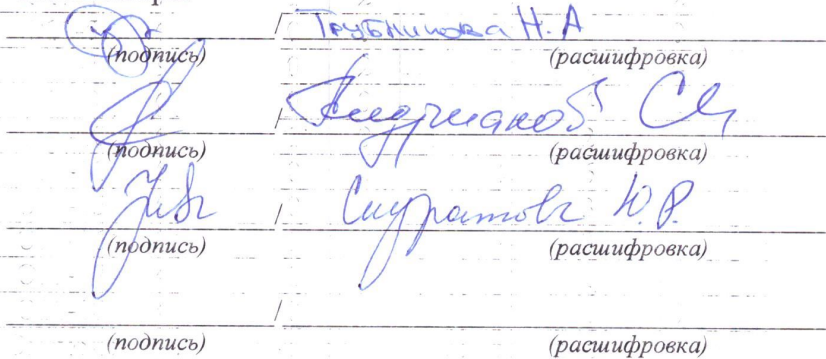 / Трубникова Н. А
(подпись) (расшифровка)
/
(подпись) (расшифровка)
/ Скуратова Ю. Р.
(подпись) (расшифровка)
/
(подпись) (расшифровка)